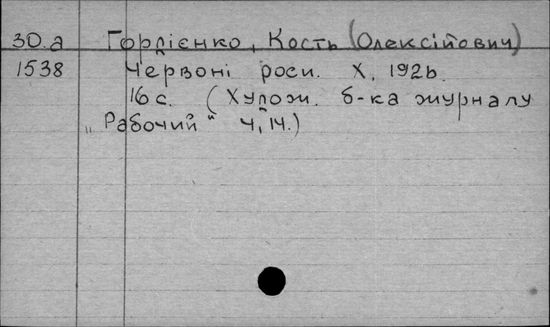 30.а Гордієнко, Кость (Олексійович)
1538 Червоні роси. Х, 1926.
16 с. (Худож. б-ка журналу
„Рабочий“ ч. 14.)